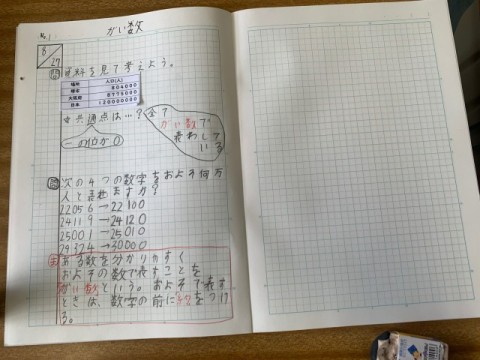 No.1
がい数
8/27
問 資料を見て考えよう。
場所 人口(人)
日本 120000000
☆共通点は…?全て
がい数で
表わして
いる
一の位が0
問 次の4つの数字をおよそ何万
人と表せますか?
22056→22100
24119→24120
25001→25010
29324→30000
ある数を分かりやすく
およその数で表すことを
がい数という。およそで表す
ときは、数字の前に約をつけ
る。